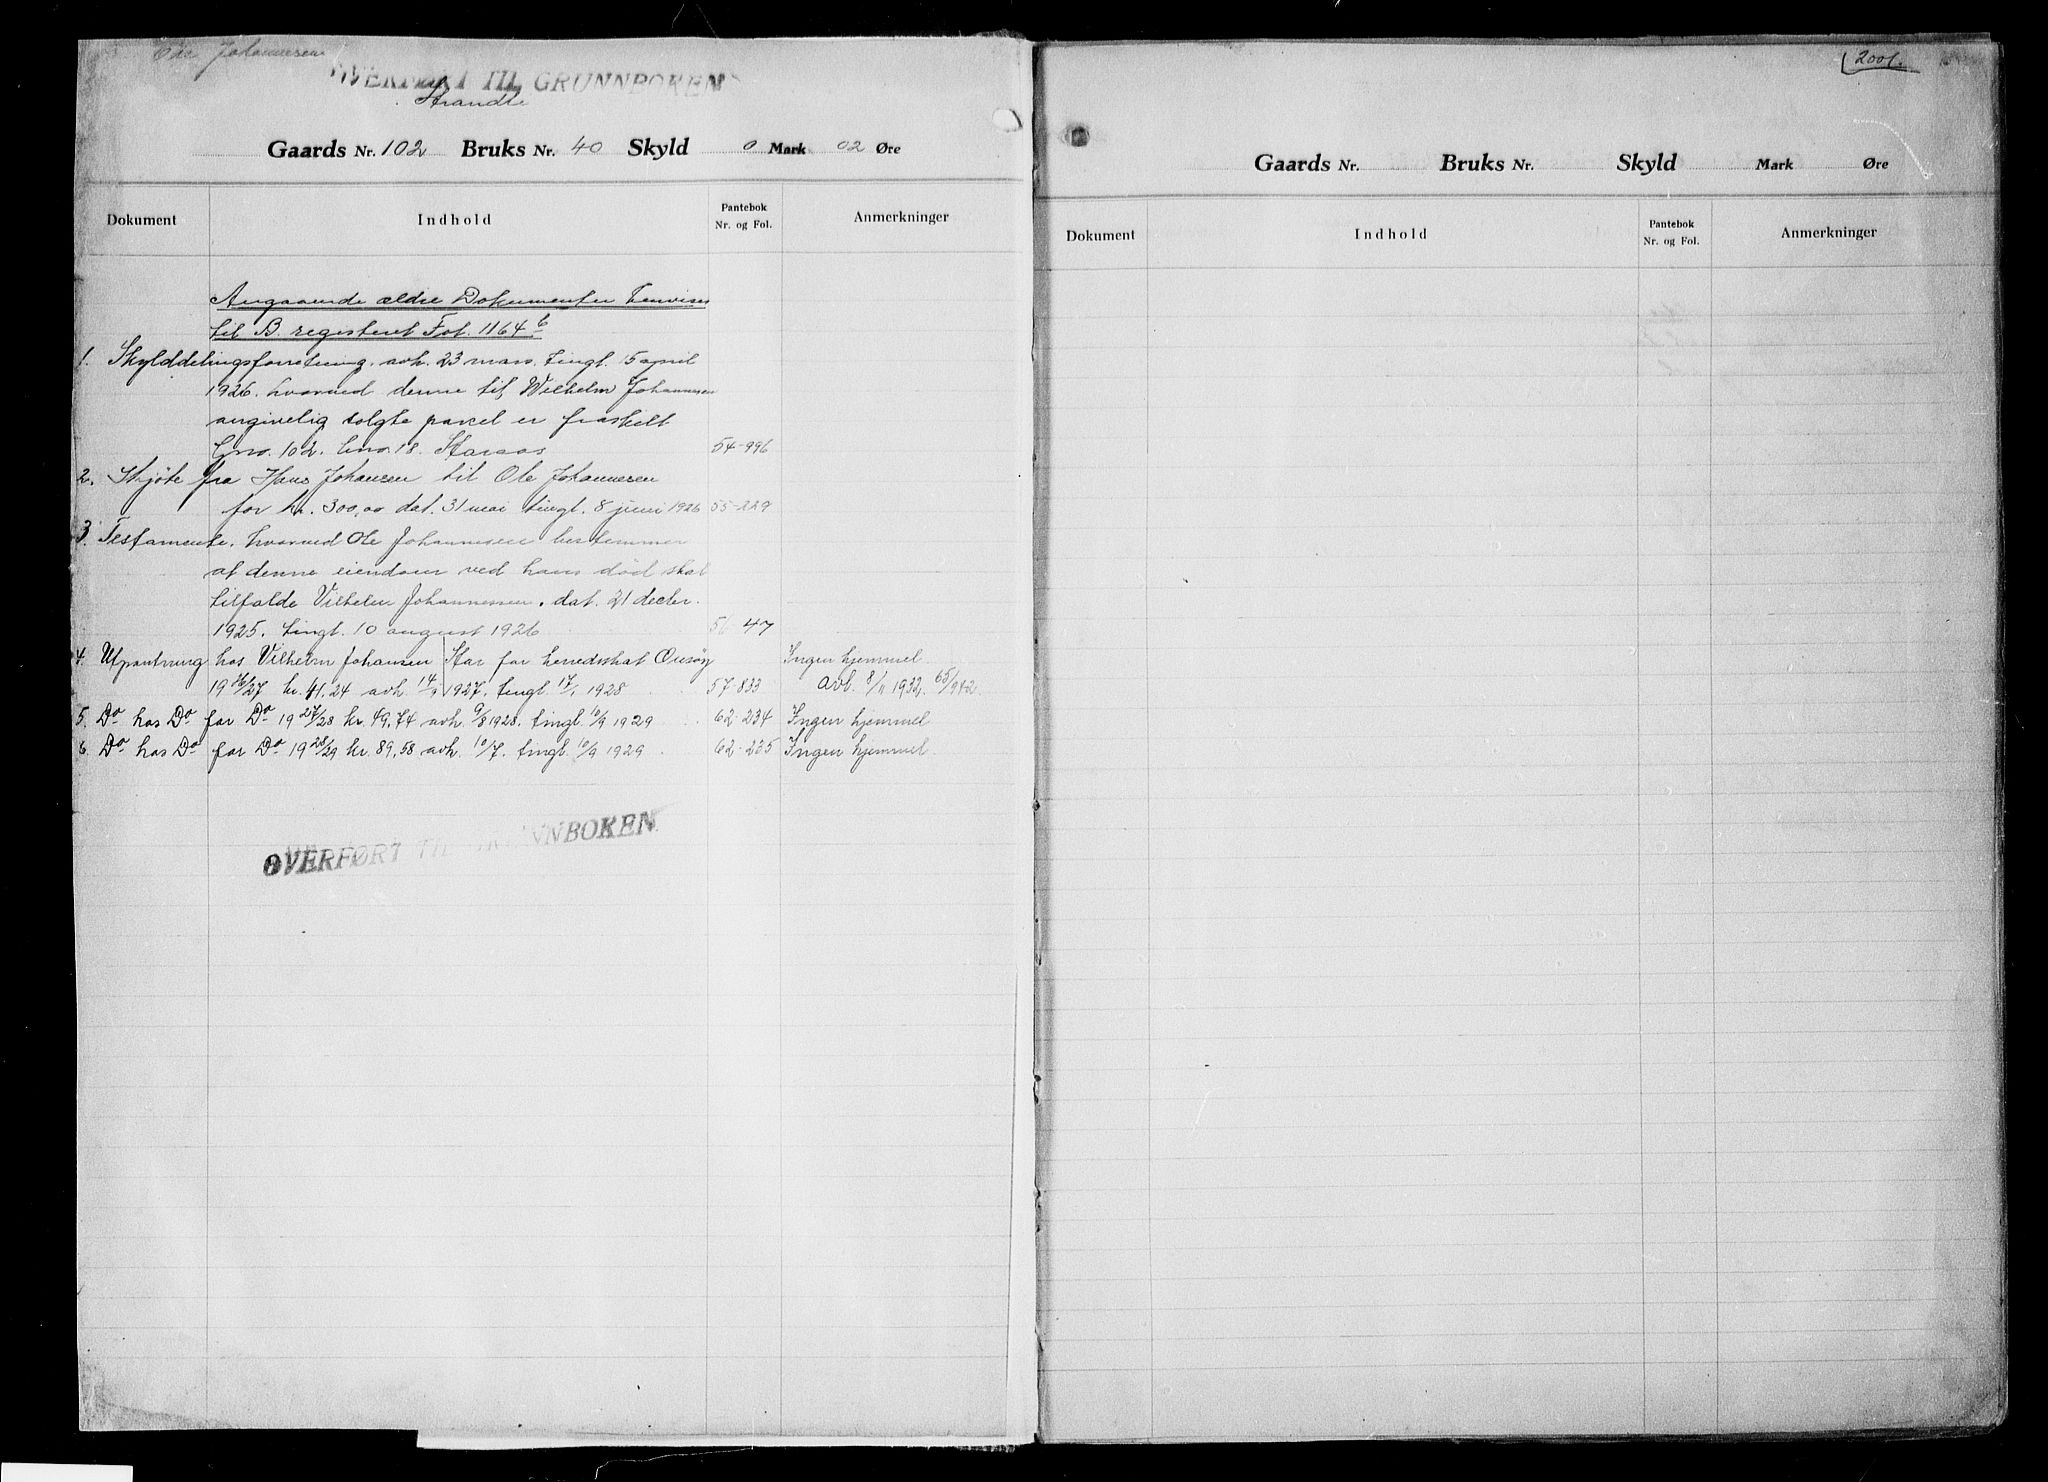 Ole Johannesen
OVERFØRT TIL GRUNNBOKEN
Strandli
Gaards Nr. 102 Bruks Nr. 40 Skyld 0 Mark 02 Øre
Dokument Indhold Pantebok Nr. og Fol. Anmerkninger
Angaaende ældre Dokumenter henvises
til B. registeret Fol. 1164 b
1. Skylddelingsforretning, avh. 23 mars, tingl. 15 april
1926. hvorved denne til Wilhelm Johannesen
angivelig solgte parcel er fraskilt
Gno. 102. bno. 18. 54-996
2. Skjøte fra Hans Johansen til Ole Johannesen
for kr. 300,00 dat. 31 mai tingl. 8 juni 1926 55-229
3. Testamente, hvorved Ole Johannesen bestemmer
at denne eiendom ved hans død skal
tilfalde Vilhelm Johannessen. dat. 21 decbr.
1925. tingl. 10 august 1926 56-47
4. Utpantning hos Vilhelm Johansen Star for herredsskat Onsøy Ingen hjemmel
19 26/27 kr. 41,24 avh. 14/9 1927. tingl. 17/1 1928 57-833 avl. 8/11 1932. 65/942
5. Do hos Do for Do 19 27/28 kr. 49,74 avh. 9/8 1928. tingl. 10/9 1929 62-234 Ingen hjemmel
6. Do hos Do for Do 19 28/29 kr. 89,58 avh. 10/7. tingl. 10/9 1929 62-235 Ingen hjemmel
OVERFØRT TIL GRUNNBOKEN
2001.
Gaards Nr. Bruks Nr. Skyld Mark Øre
Dokument Indhold Pantebok Nr. og Fol. Anmerkninger